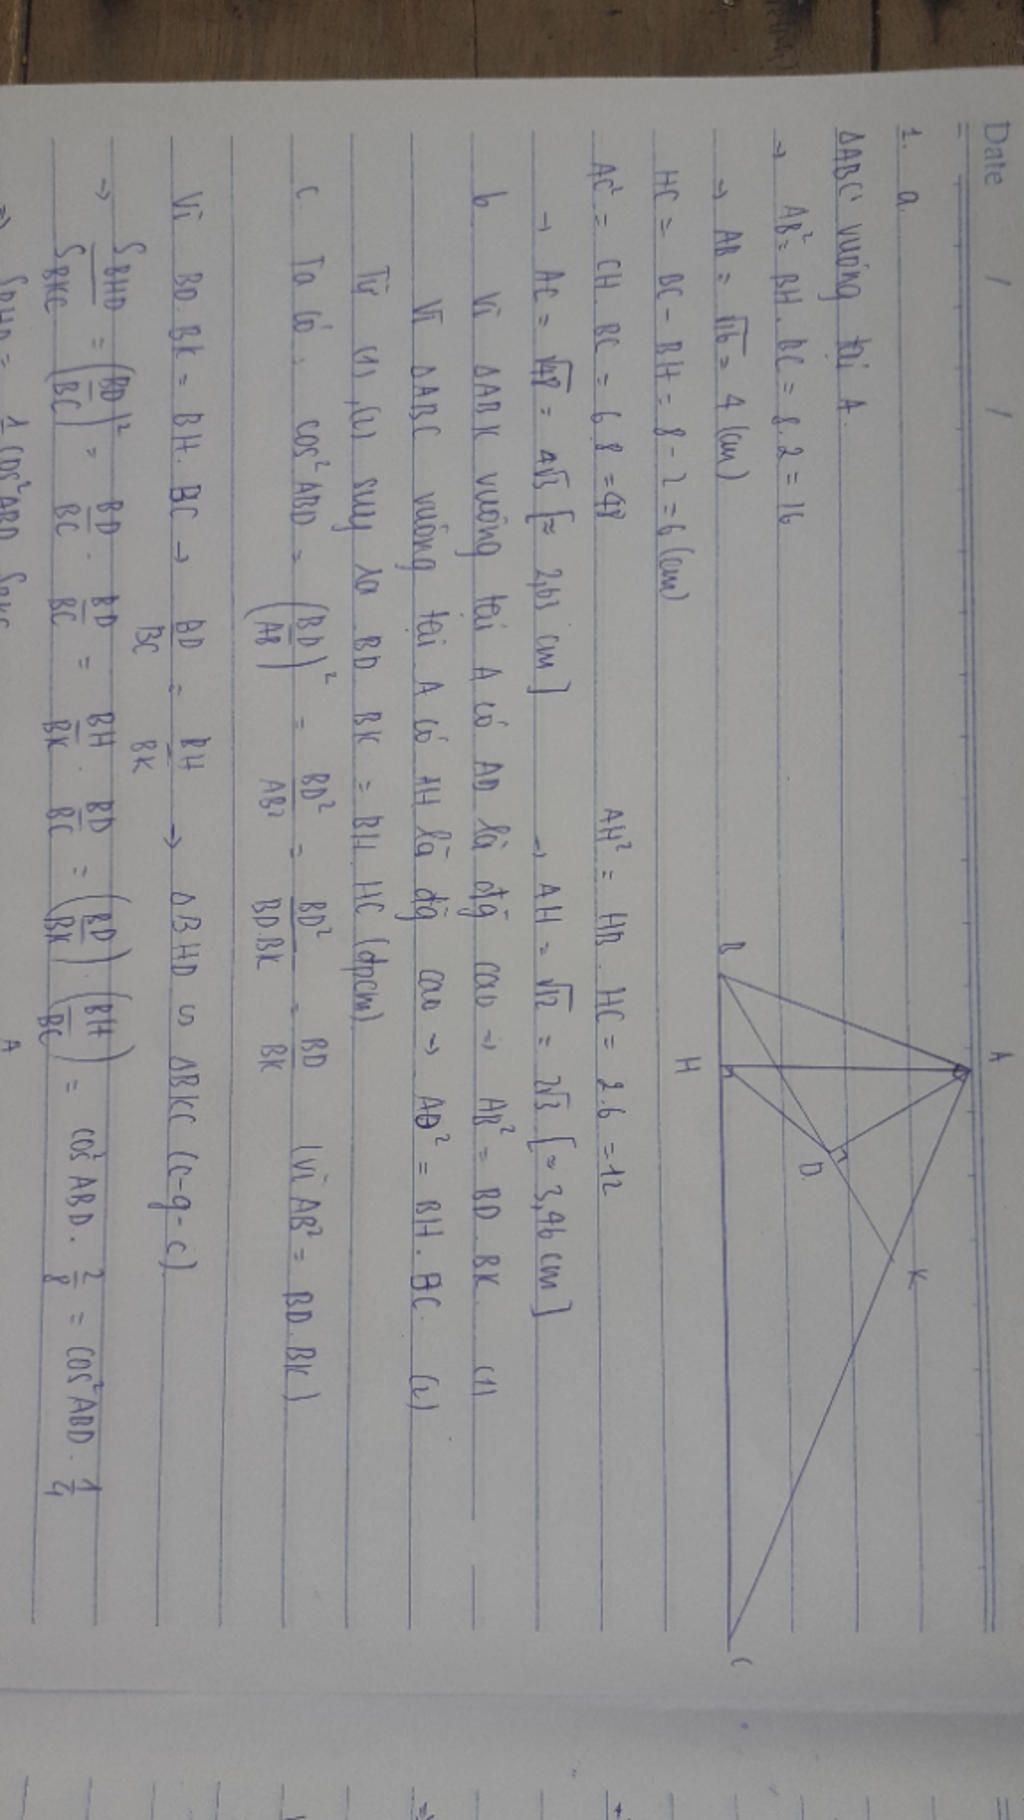 Date / /
1. a.
ΔABC vuông tại A.
→ AB² = BH. BC = 8.2 = 16
→ AB = √16 = 4 (cm)
HC = BC - BH = 8 - 2 = 6 (cm)
AC² = CH. BC = 6.8 = 48 AH² = HB. HC = 2.6 = 12
→ AC = √48 = 4√3 [≈ 2,63 cm] → AH = √12 = 2√3 [≈ 3,46 cm]
A
B
H
D
K
C
b Vì ΔABK vuông tại A có AD là đg cao → AB² = BD. BK. (1)
Vì ΔABC vuông tại A có AH là đg cao → AB² = BH. BC. (2)
Từ (1), (2) suy ra BD BK = BH. HC (đpcm)
c. Ta có: cos²ABD = (BD/AB)² = BD²/AB² = BD²/BD.BK = BD/BK (vì AB² = BD.BK)
Vì BD. BK = BH. BC → BD/BC = BH/BK → ΔBHD ∽ ΔBKC (c-g-c)
→ S BHD/S BKC = (BD/BC)² = BD/BC . BD/BC = BH/BK . BD/BC = (BD/BK) . (BH/BC) = cos²ABD. 2/8 = cos²ABD. 1/4
⇒ S BHD = 1/4 cos²ABD S BKC
A